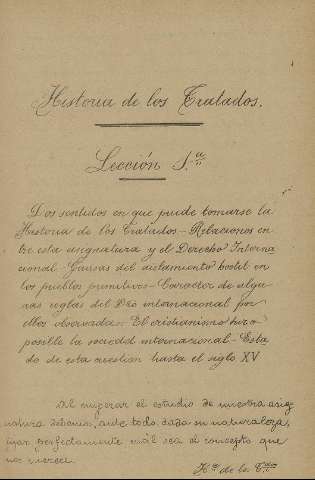 Historia de los Tratados.
Lección 1.ª
Dos sentidos en que puede tomarse la
Historia de los Tratados - Relaciones en
tre esta asignatura y el Derecho Interna
cional - Causas del aislamiento hostil en
los pueblos primitivos - Caracter de algu
nas reglas del Dro internacional por
ellos observadas - El cristianismo hizo
posible la sociedad internacional - Esta
do de esta cuestion hasta el siglo XV
Al empezar el estudio de nuestra asig
natura debemos, ante todo, dada su naturaleza,
fijar perfectamente cuál sea el concepto que
nos merece.
H.ª de los T.dos